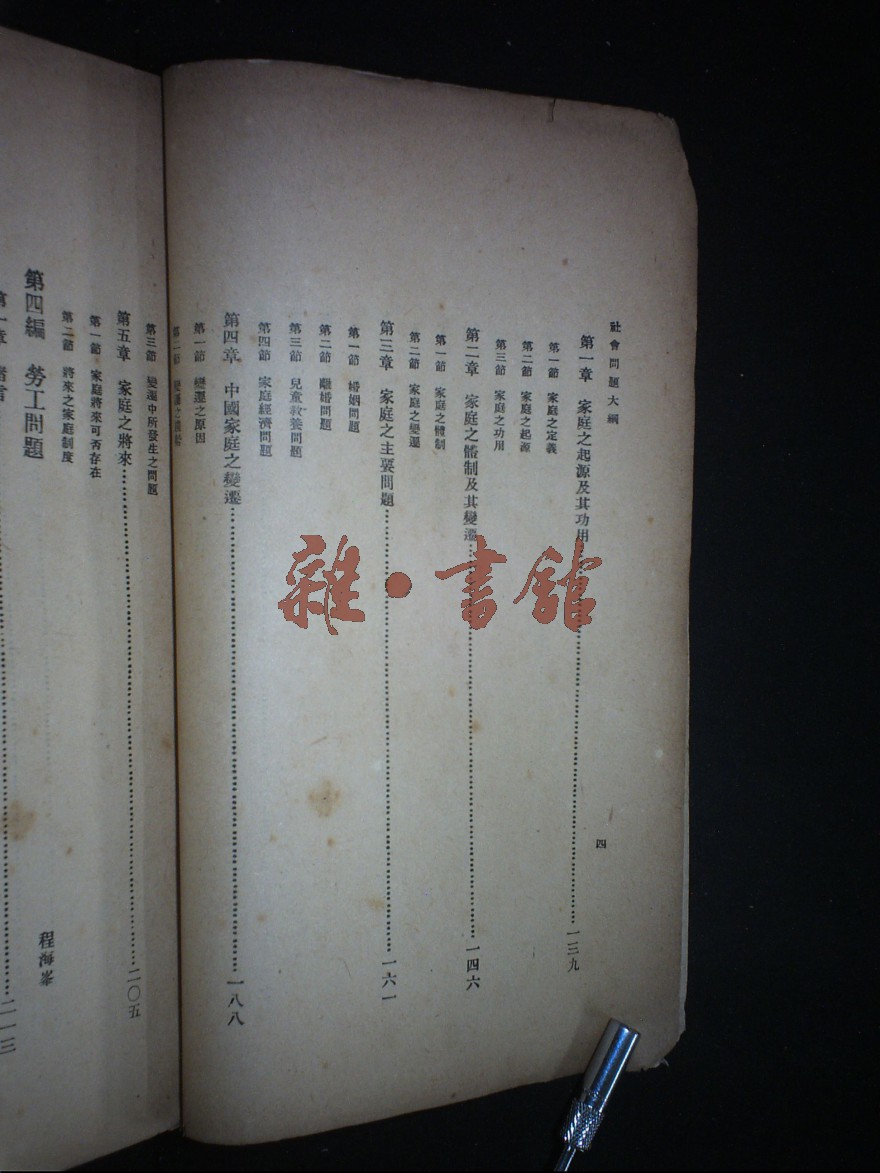 社會問題大綱
四
第一章 家庭之起源及其功用……一三九
第一節 家庭之定義
第二節 家庭之起源
第三節 家庭之功用
第二章 家庭之體制及其變遷……一四六
第一節 家庭之體制
第二節 家庭之變遷
第三章 家庭之主要問題……一六一
第一節 婚姻問題
第二節 離婚問題
第三節 兒童教養問題
第四節 家庭經濟問題
第四章 中國家庭之變遷……一八八
第一節 變遷之原因
第二節 變遷之
第三節 變遷中所發生之問題
第五章 家庭之將來……二〇五
第一節 家庭將來可否存在
第二節 將來之家庭制度
第四編 勞工問題 程海峯
第一章 緒言……二一三
雜·書館